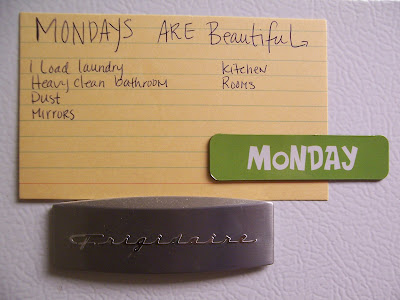 MONDAYS ARE Beautiful
1 Load laundry
Heavy clean bathroom
Dust
Mirrors
Kitchen
Rooms
MONDAY
Frigidaire